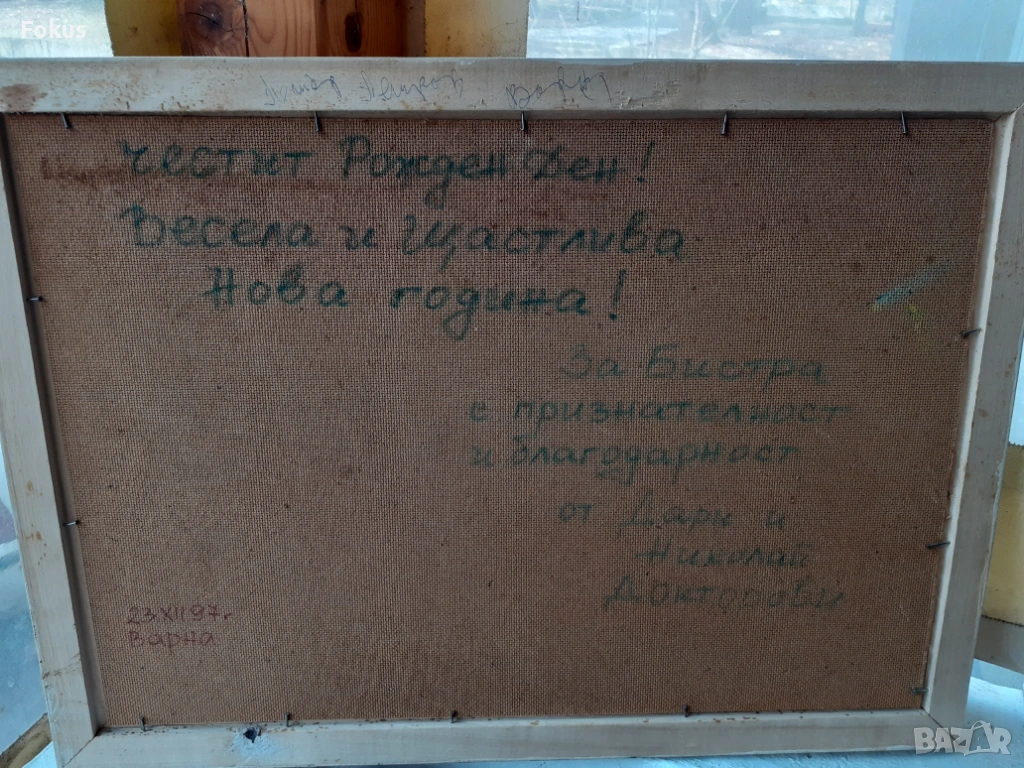 Fokus
Честит Рожден Ден!
Весела и Щастлива
Нова година!
За Бистра
с признателност
и благодарност
от Дари и
Николай
Докторови
23.XII.97г
Варна
BAZAR